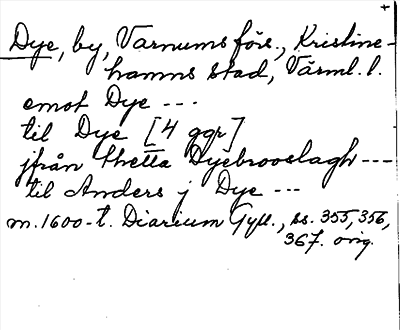 +
Dye, by, Varnums förs., Kristine-
hamns stad, Värml. l.
emot Dye ---
til Dye [4 ggr]
jfrån thetta Dyebrooslagh ---
til Anders j Dye ---
m. 1600-t. Diarium Gyll., ss. 355, 356,
367. orig.